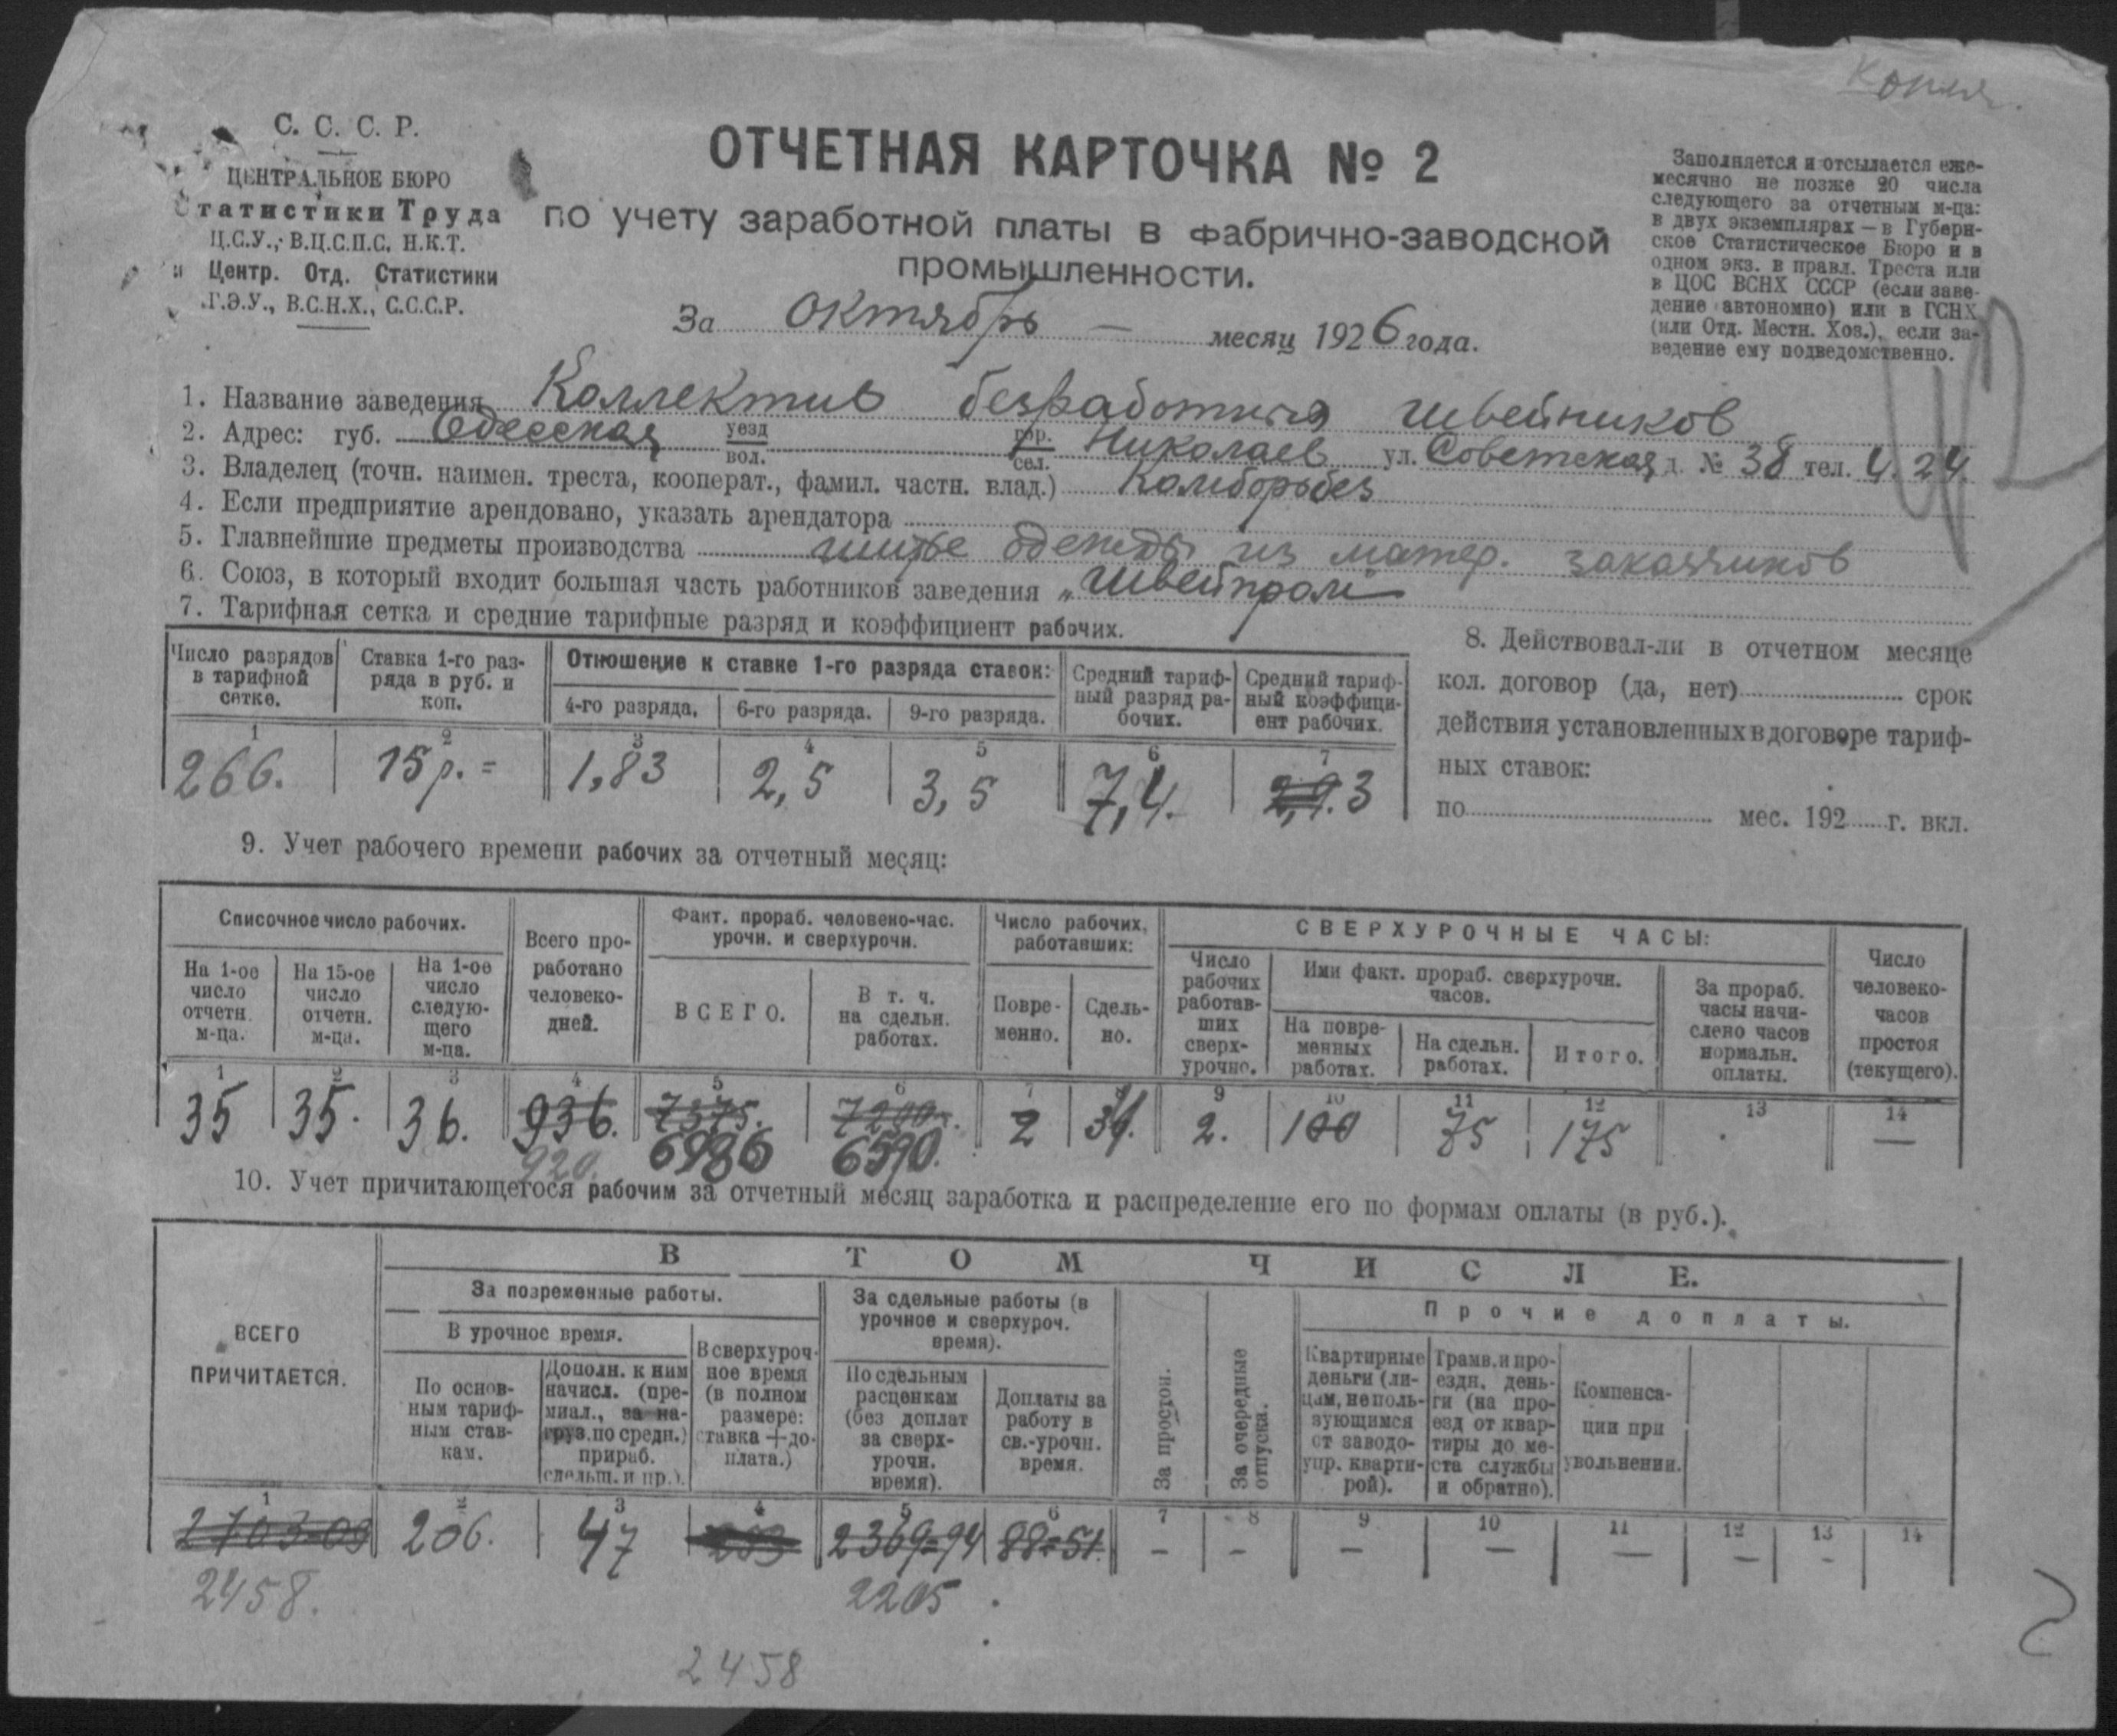 Копия.
С. С. С. Р.
ЦЕНТРАЛЬНОЕ БЮРО
Статистики Труда
Ц.С.У., В.Ц.С.П.С. Н.К.Т.
и Центр. Отд. Статистики
Г.Э.У., В.С.Н.Х., С.С.С.Р.
ОТЧЕТНАЯ КАРТОЧКА № 2
по учету заработной платы в фабрично-заводской
промышленности.
За октябрь — месяц 1926 года.
Заполняется и отсылается еже-
месячно не позже 20 числа
следующего за отчетным м-ца:
в двух экземплярах — в Губерн-
ское Статистическое Бюро и в
одном экз. в правл. Треста или
в ЦОС ВСНХ СССР (если заве-
дение автономно) или в ГСНХ
(или Отд. Местн. Хоз.), если за-
ведение ему подведомственно.
1. Название заведения Коллектив безработных швейников
2. Адрес: губ. Одесская уезд вол. гор. сел. Николаев ул. Советская д. № 38 тел. 4.24.
3. Владелец (точн. наимен. треста, кооперат., фамил. частн. влад.) Комборьбез
4. Если предприятие арендовано, указать арендатора
5. Главнейшие предметы производства шитье одежды из матер. заказчиков
6. Союз, в который входит большая часть работников заведения „Швейпром"
7. Тарифная сетка и средние тарифные разряд и коэффициент рабочих.
Число разрядов в тарифной сетке.
Ставка 1-го раз-ряда в руб. и коп.
Отношение к ставке 1-го разряда ставок:
4-го разряда. 6-го разряда. 9-го разряда.
Средний тариф-ный разряд ра-бочих.
Средний тариф-ный коэффици-ент рабочих.
1 2 3 4 5 6 7
266. 15 р. = 1,83 2,5 3,5 7,4. 2,9. 3
8. Действовал-ли в отчетном месяце
кол. договор (да, нет) срок
действия установленных в договоре тариф-
ных ставок:
по мес. 192 г. вкл.
9. Учет рабочего времени рабочих за отчетный месяц:
Списочное число рабочих.
На 1-ое число отчетн. м-ца.
На 15-ое число отчетн. м-ца.
На 1-ое число следую-щего м-ца.
Всего про-работано человеко-дней.
Факт. прораб. человеко-час. урочн. и сверхурочн.
ВСЕГО.
В т. ч. на сдельн. работах.
Число рабочих, работавших:
Повре-менно.
Сдель-но.
СВЕРХУРОЧНЫЕ ЧАСЫ:
Число рабочих работав-ших сверх-урочно.
Ими факт. прораб. сверхурочн. часов.
На повре-менных работах.
На сдельн. работах.
Итого.
За прораб. часы начи-слено часов нормальн. оплаты.
Число человеко-часов простоя (текущего).
1 2 3 4 5 6 7 8 9 10 11 12 13 14
35 35. 36. 936. 7375. 7200. 2 34. 2. 100 75 175 —
920. 6986 6590.
10. Учет причитающегося рабочим за отчетный месяц заработка и распределение его по формам оплаты (в руб.).
ВСЕГО ПРИЧИТАЕТСЯ.
В ТОМ ЧИСЛЕ.
За повременные работы.
В урочное время.
По основ-ным тариф-ным став-кам.
Дополн. к ним начисл. (пре-миал., за на-груз. по средн.) прираб. сдельщ. и пр.).
В сверхуроч-ное время (в полном размере: ставка + до-плата.)
За сдельные работы (в урочное и сверхуроч. время).
По сдельным расценкам (без доплат за сверх-урочн. время).
Доплаты за работу в св.-урочн. время.
За простои.
За очередные отпуска.
Прочие доплаты.
Квартирные деньги (ли-цам, не поль-зующимся от заводо-упр. кварти-рой).
Трамв. и про-ездн. день-ги (на про-езд от квар-тиры до ме-ста службы и обратно).
Компенса-ции при увольнении.
1 2 3 4 5 6 7 8 9 10 11 12 13 14
2703-03 206. 47 253 2369=94 88=51. – – – — — – –
2458. 2205
2458